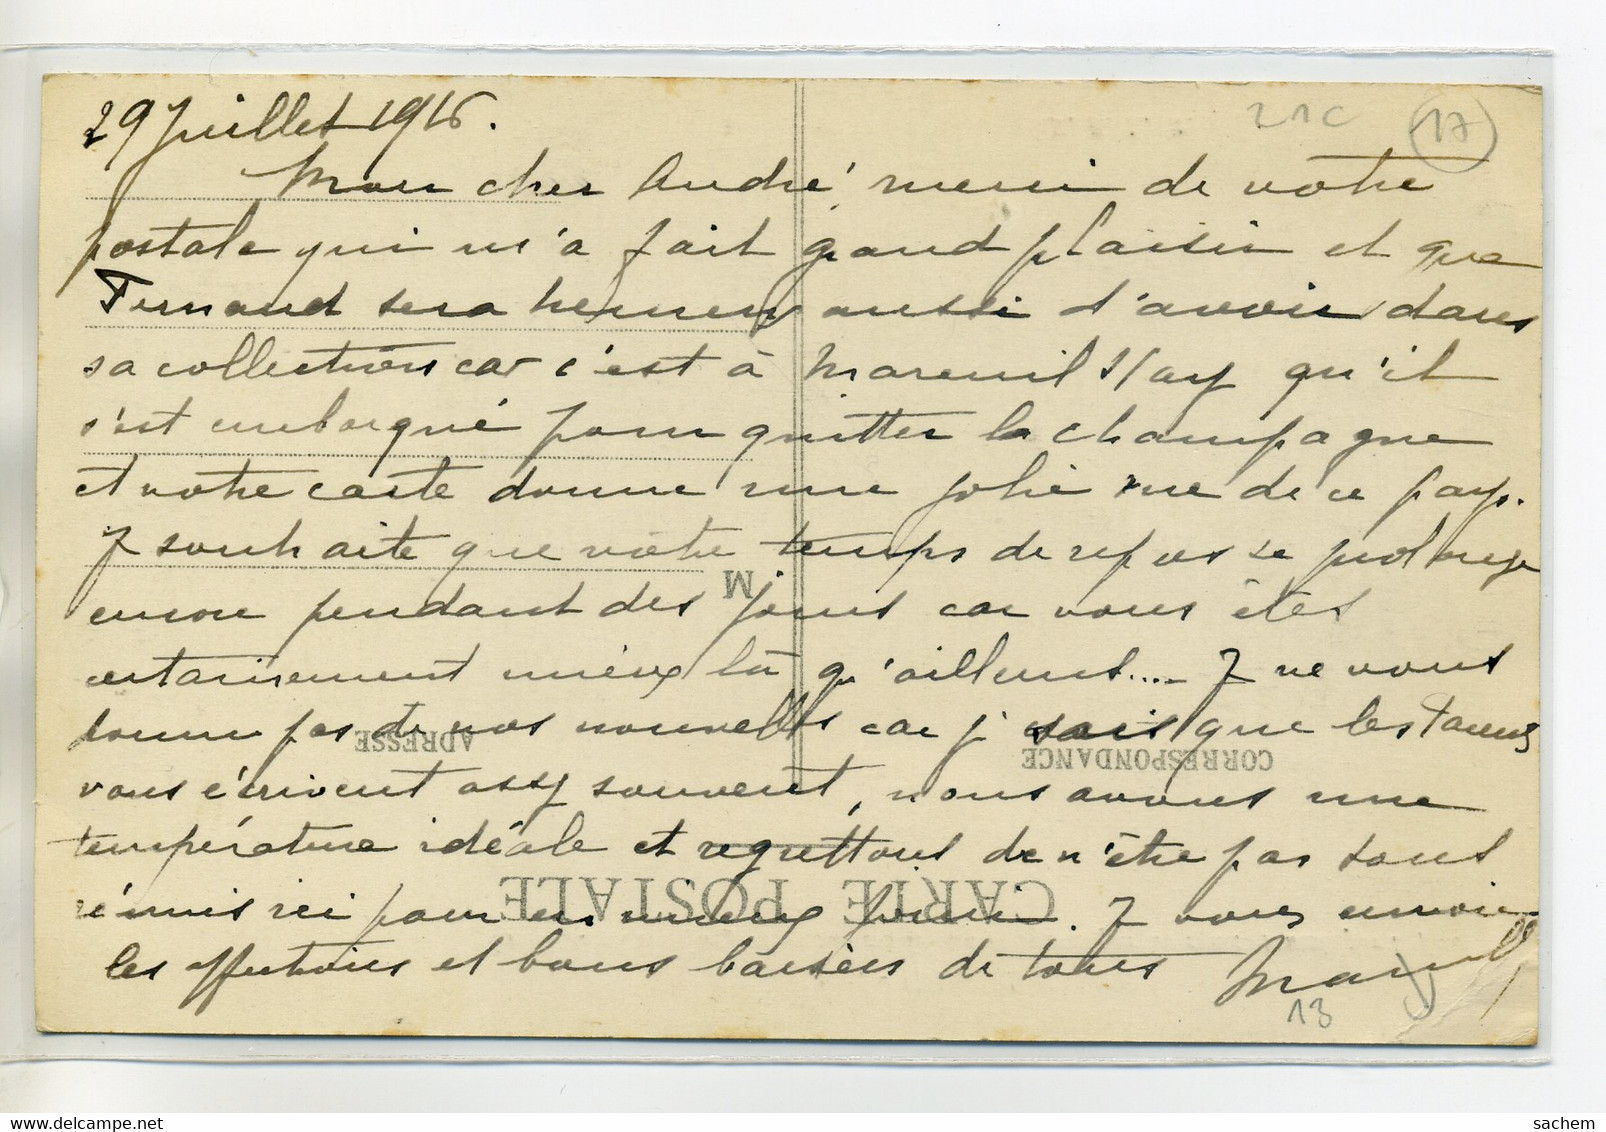 29 Juillet 1916.
21C 17
Mon cher André, merci de votre
postale qui m'a fait grand plaisir et que
Fernand sera heureux aussi d'avoir dans
sa collection car c'est à Mareuil s/ay qu'il
s'est embarqué pour quitter la Champagne
et votre carte donne une jolie vue de ce pays.
J souhaite que votre temps de repos se prolonge
encore pendant des jours car vous êtes
certainement mieux là qu'ailleurs.... J ne vous
donne pas de nos nouvelles car j sais que les
vous écrivent assez souvent, nous avons une
température idéale et regrettons de n'être pas tous
réunis ici pour en mieux jouir. J vous envoie
les affections et bons baisers de tous
13
M
ADRESSE
CORRESPONDANCE
CARTE POSTALE
sachem